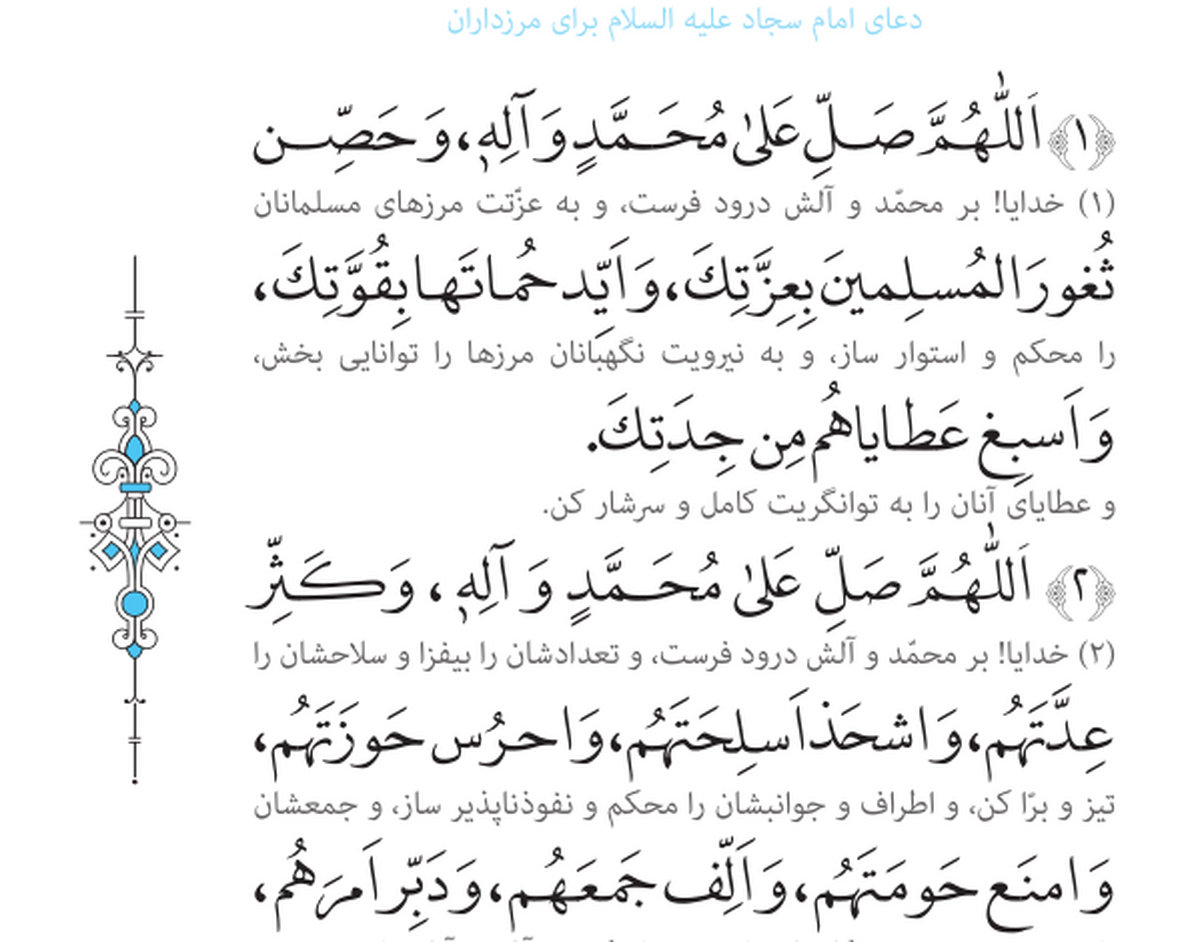 دعای امام سجاد علیه السلام برای مرزداران
﴿١﴾ اَللّٰهُمَّ صَلِّ عَلىٰ مُحَمَّدٍ وَ آلِهِ، وَ حَصِّن
(۱) خدایا! بر محمّد و آلش درود فرست، و به عزّتت مرزهای مسلمانان
ثُغورَ المُسلِمينَ بِعِزَّتِكَ، وَ اَيِّد حُماتَها بِقُوَّتِكَ،
را محکم و استوار ساز، و به نیرویت نگهبانان مرزها را توانایی بخش،
وَ اَسبِغ عَطاياهُم مِن جِدَتِكَ.
و عطایای آنان را به توانگریت کامل و سرشار کن.
﴿٢﴾ اَللّٰهُمَّ صَلِّ عَلىٰ مُحَمَّدٍ وَ آلِهِ، وَ كَثِّر
(۲) خدایا! بر محمّد و آلش درود فرست، و تعدادشان را بیفزا و سلاحشان را
عِدَّتَهُم، وَ اشحَذ اَسلِحَتَهُم، وَ احرُس حَوزَتَهُم،
تیز و برّا کن، و اطراف و جوانبشان را محکم و نفوذناپذیر ساز، و جمعشان
وَ امنَع حَومَتَهُم، وَ اَلِّف جَمعَهُم، وَ دَبِّر اَمرَهُم،